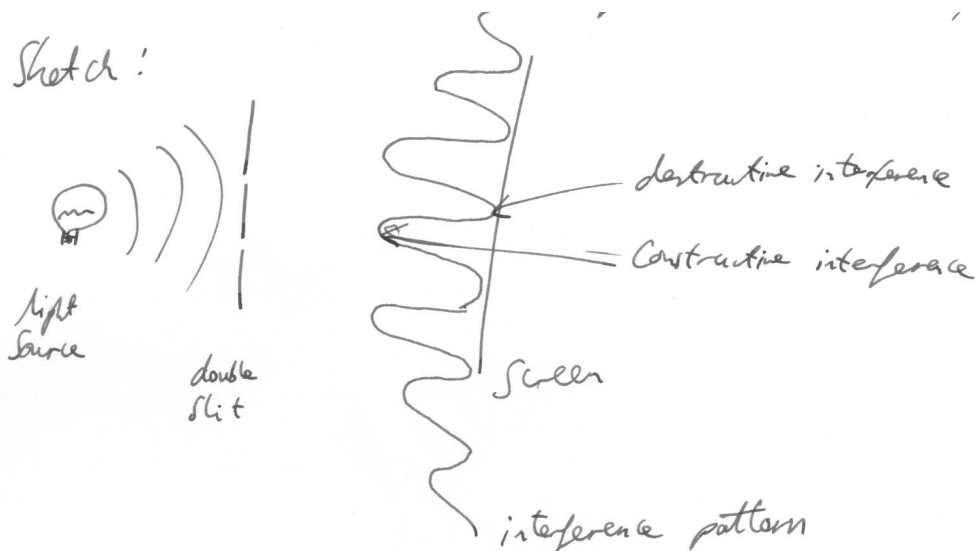 Sketch:
light
source
double
slit
destructive interference
constructive interference
Screen
interference pattern